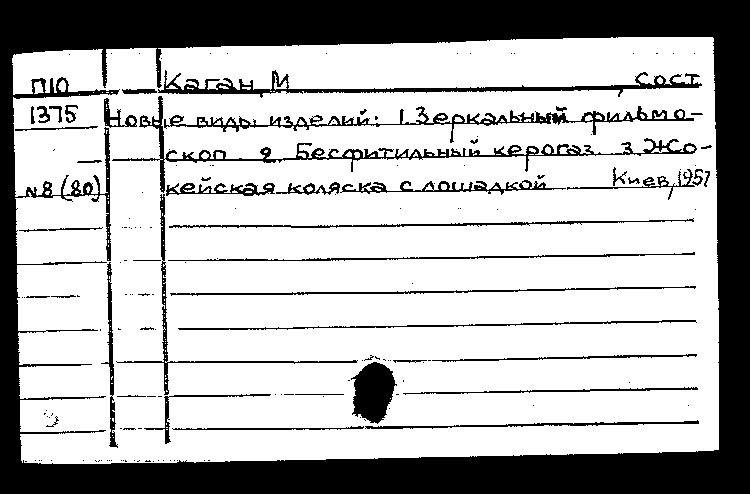 П10 Каган, М , сост
1375 Новые виды изделий: 1. Зеркальный фильмо-
скоп. 2. Бесфитильный керогаз. 3 Жо-
№8 (80) кейская коляска с лошадкой Киев, 1957